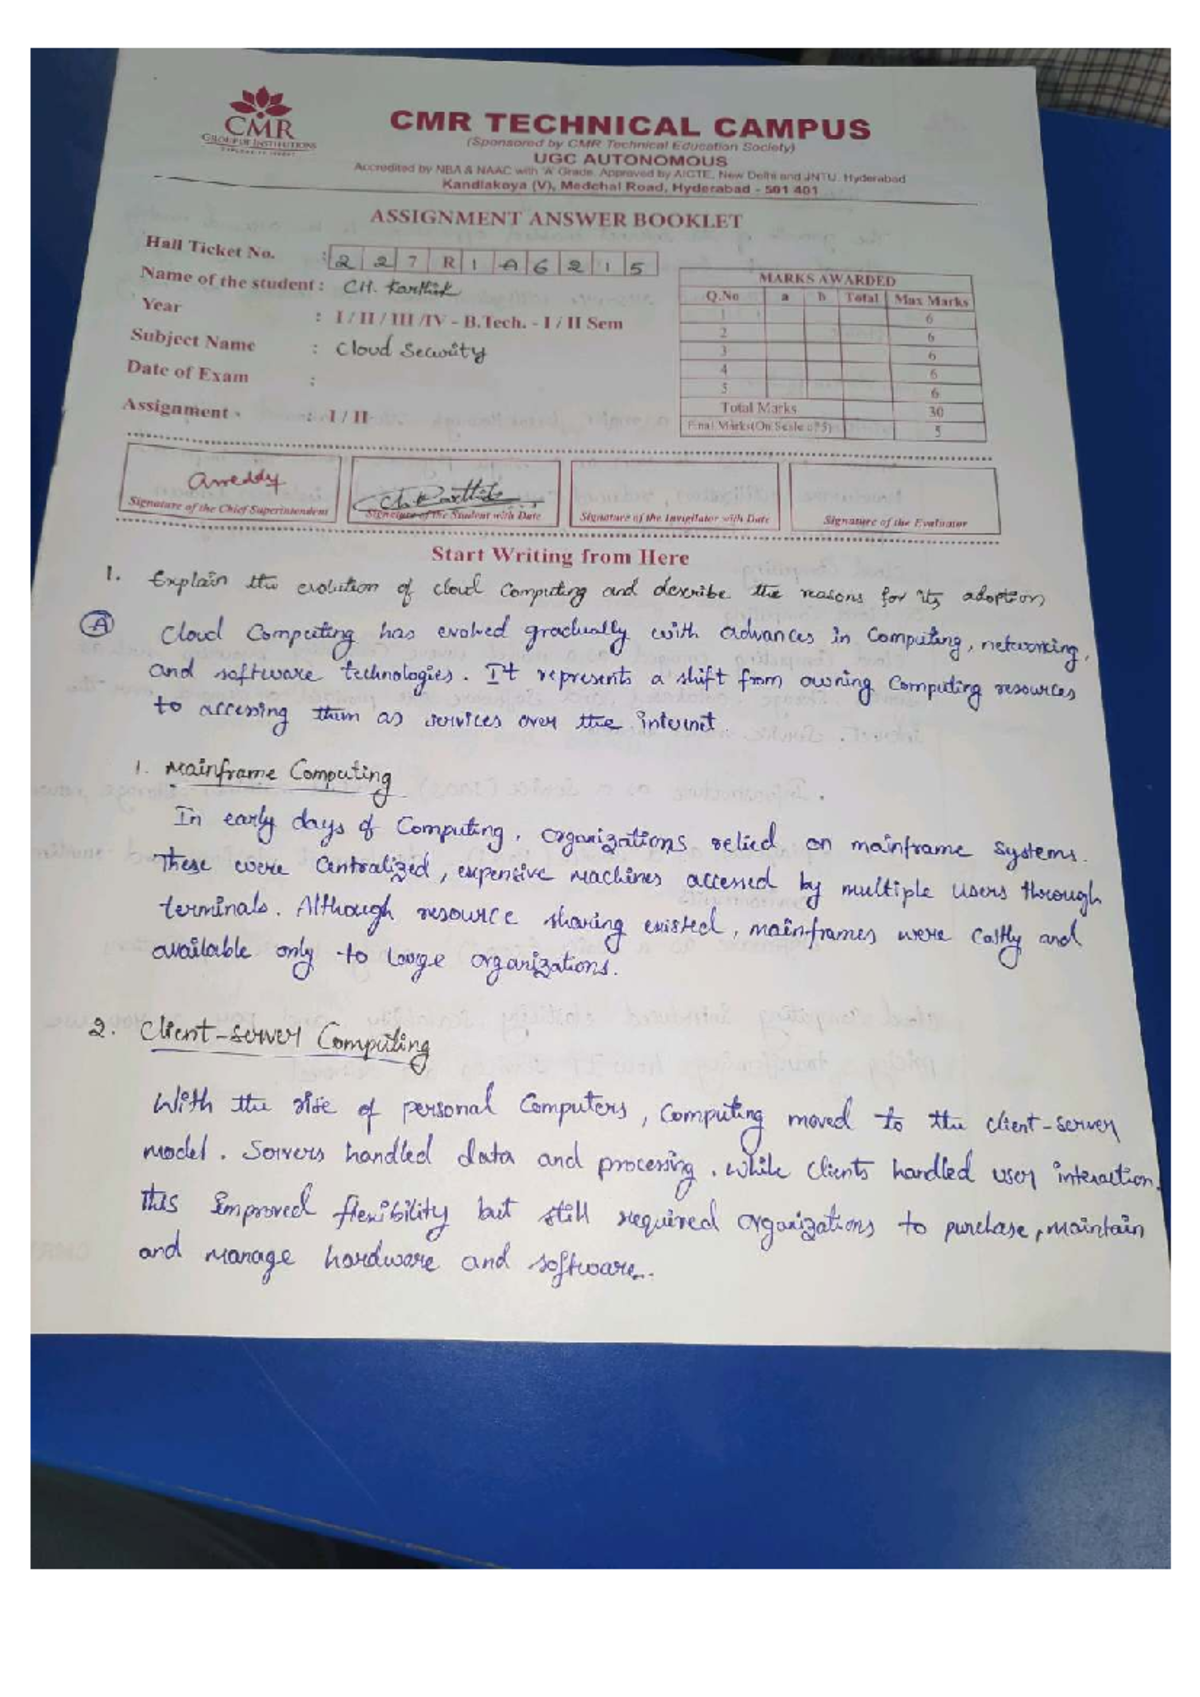 CMR
GROUP OF INSTITUTIONS
CMR TECHNICAL CAMPUS
(Sponsored by CMR Technical Education Society)
UGC AUTONOMOUS
Accredited by NBA & NAAC with 'A' Grade. Approved by AICTE, New Delhi and JNTU. Hyderabad
Kandlakoya (V), Medchal Road, Hyderabad - 501 401
ASSIGNMENT ANSWER BOOKLET
Hall Ticket No. : 2 2 7 R 1 A 6 2 1 5
Name of the student : CH. Karthik
Year : I / II / III /IV - B.Tech. - I / II Sem
Subject Name : Cloud Security
Date of Exam :
Assignment - : I / II
MARKS AWARDED
Q.No a b Total Max Marks
1 6
2 6
3 6
4 6
5 6
Total Marks 30
Final Marks(On Scale of 5) 5
Areddy
Signature of the Chief Superintendent
Ch. Karthik
Signature of the Student with Date
Signature of the Invigilator with Date
Signature of the Evaluator
Start Writing from Here
1. Explain the evolution of cloud Computing and describe the reasons for its adoption
A Cloud Computing has evolved gradually with advances in Computing, networking,
and software technologies. It represents a shift from owning Computing resources
to accessing them as services over the internet
1. Mainframe Computing
In early days of Computing, organizations relied on mainframe systems.
These were Centralized, expensive machines accessed by multiple users through
terminals. Although resource sharing existed, mainframes were Costly and
available only to large organizations.
2. Client-server Computing
With the rise of personal Computers, Computing moved to the client-server
model. Servers handled data and processing. While clients handled user interaction.
this improved flexibility but still required organizations to purchase, maintain
and manage hardware and software.